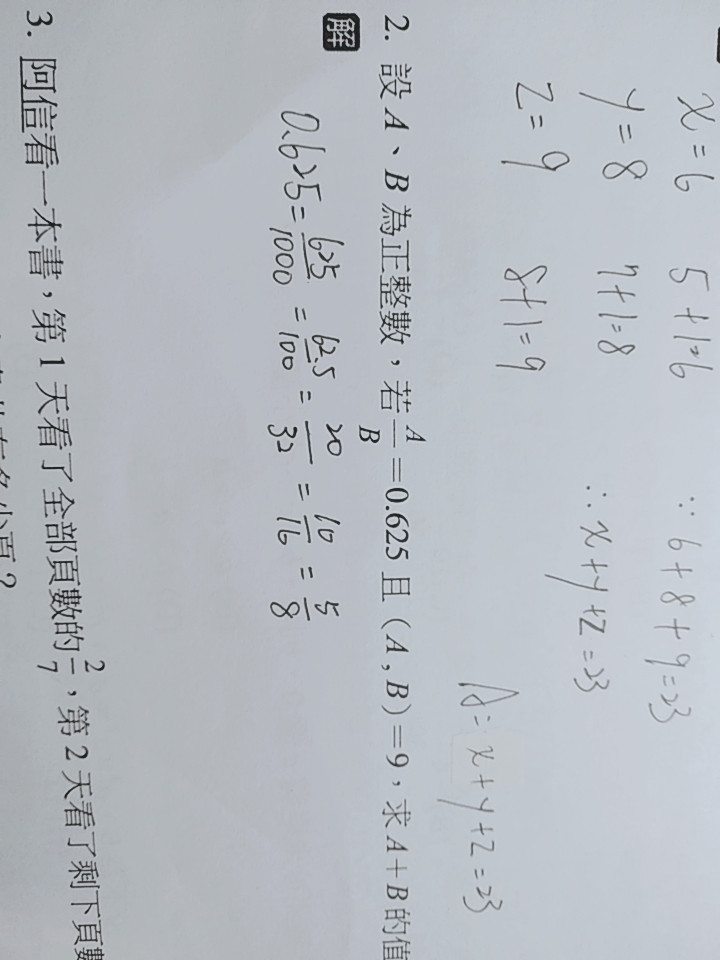 x=6 5+1=6 ∵6+8+9=23
y=8 7+1=8 ∴x+y+z=23
z=9 8+1=9
A=x+y+z=23
2. 設A、B為正整數，若A/B=0.625且(A,B)=9，求A+B的值
解
0.625=625/1000=62.5/100=20/32=10/16=5/8
3. 阿信看一本書，第1天看了全部頁數的2/7，第2天看了剩下頁數
多少頁？